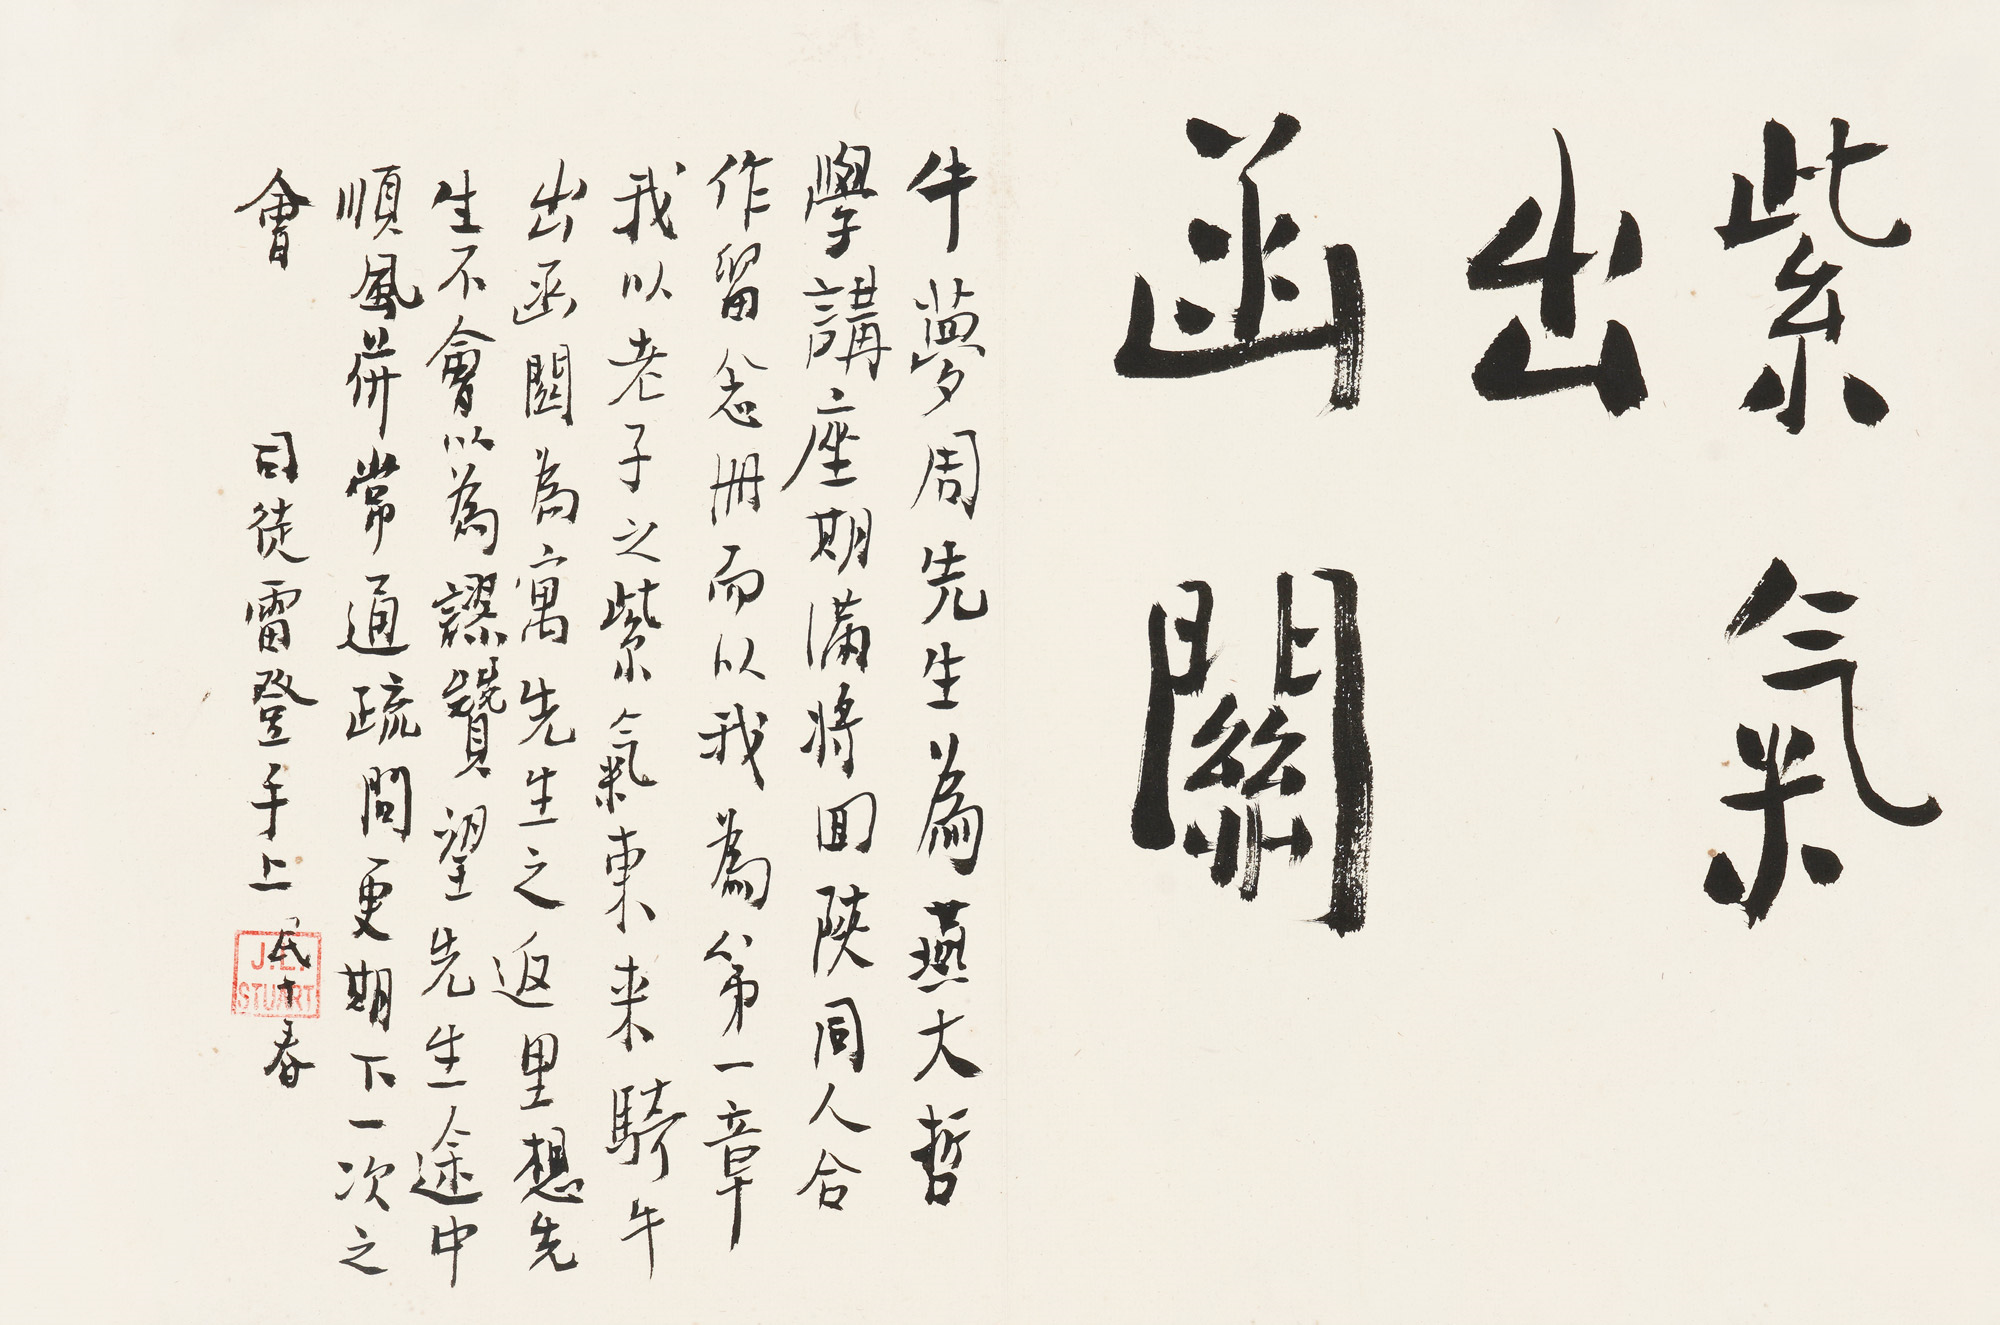 紫氣
出
函關
牛夢周先生為燕大哲
學講座期滿將回陝同人合
作留念冊而以我為第一章
我以老子之紫氣東来騎牛
出函関為寓先生之返里想先
生不會以為謬讚望先生途中
順風并常通疏問更期下一次之
會
司徒雷登手上 民十春
J.L.
STUART